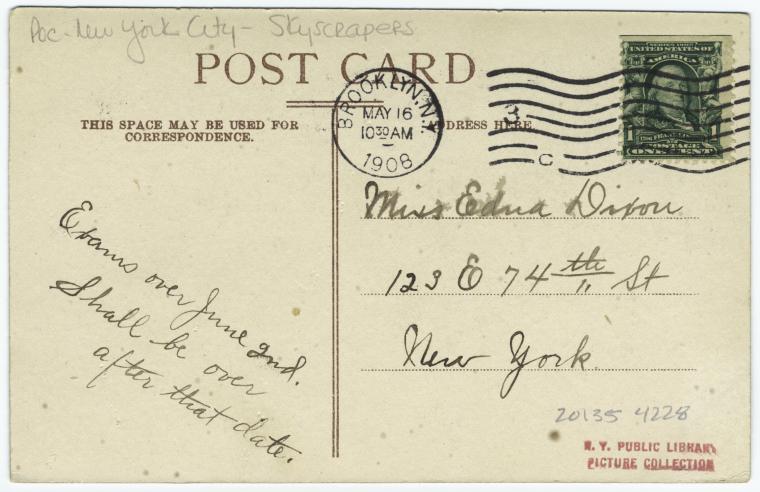 Poc - New York City - Skyscrapers
POST CARD
THIS SPACE MAY BE USED FOR
CORRESPONDENCE.
ADDRESS HERE.
BROOKLYN, N.Y.
MAY 16
1030 AM
1908
C
SERIES 1902
UNITED STATES OF
AMERICA
1 1
POSTAGE
ONE CENT
Miss Edna Dixon
123 E 74th St
New York.
Exams over June 2nd.
Shall be over
after that date.
20135 4228
N. Y. PUBLIC LIBRARY
PICTURE COLLECTION